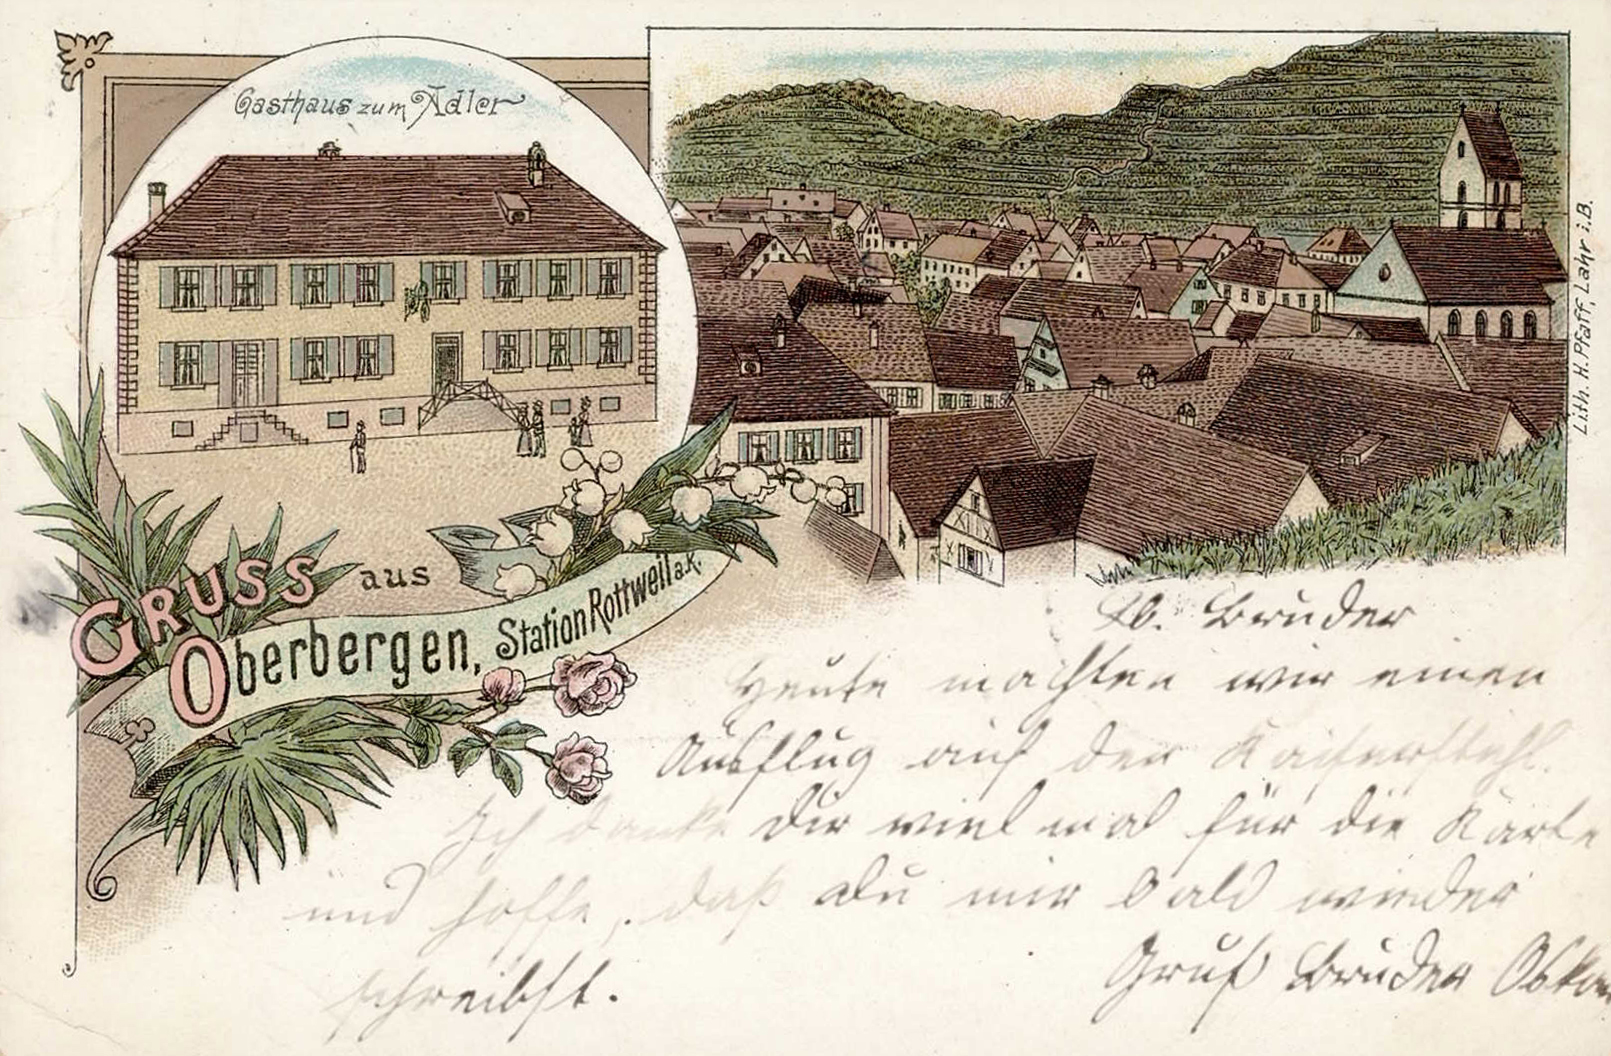 Gasthaus zum Adler
Lith. H. Pfaff, Lahr i. B.
GRUSS aus
Oberbergen, Station Rottweil a.K.
Lb. Bruder
Heute machten wir einen
Ausflug auf den Kaiserstuhl.
Ich danke Dir viel mal für die Karte
und hoffe, daß du mir bald wieder
schreibst.
Gruß Bruder Oskar